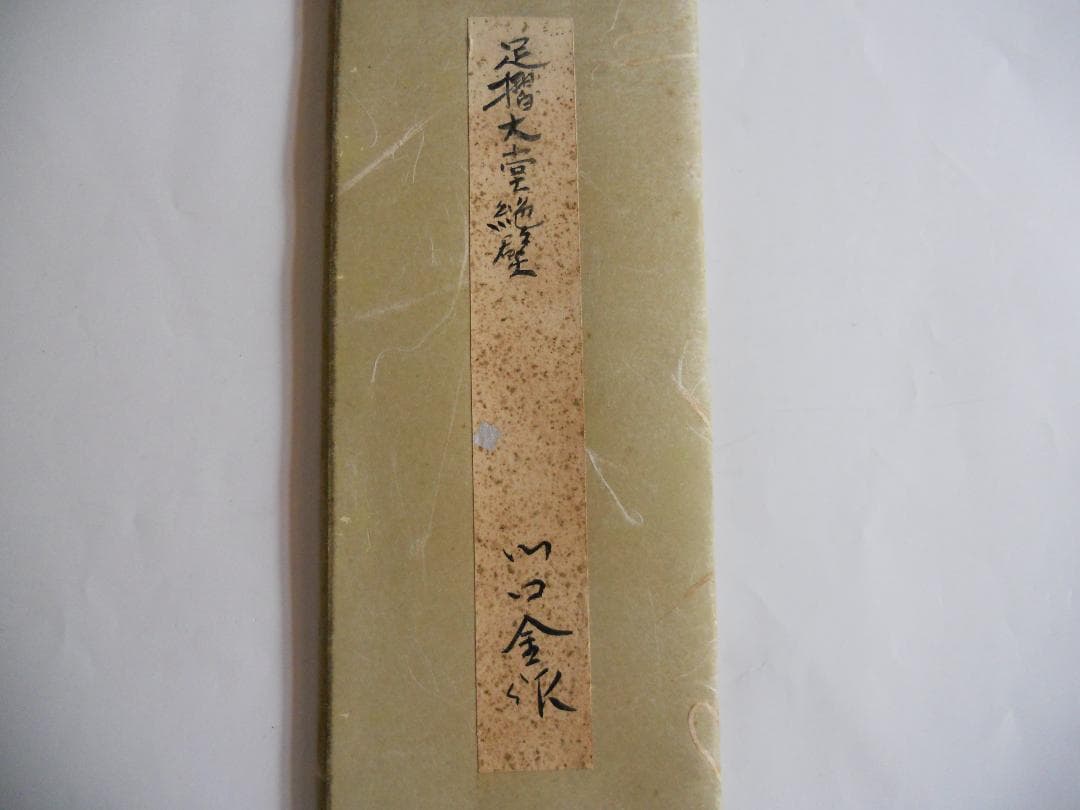 足摺大堂絶壁
川口金作